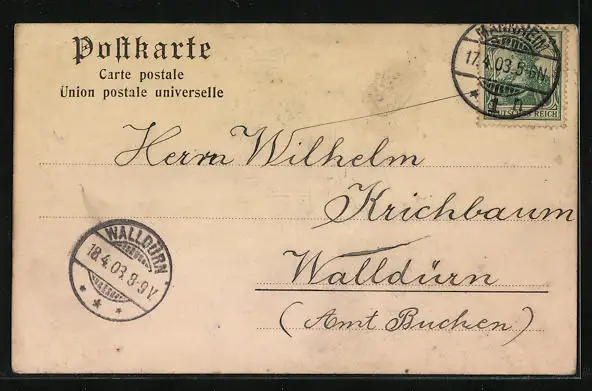 Postkarte
Carte postale
Union postale universelle
MANNHEIM
17.4.03.5-6N.
DEUTSCHES REICH
Herrn Wilhelm
Krichbaum
Walldürn
(Amt Buchen)
WALLDÜRN
18.4.03.8-9V.